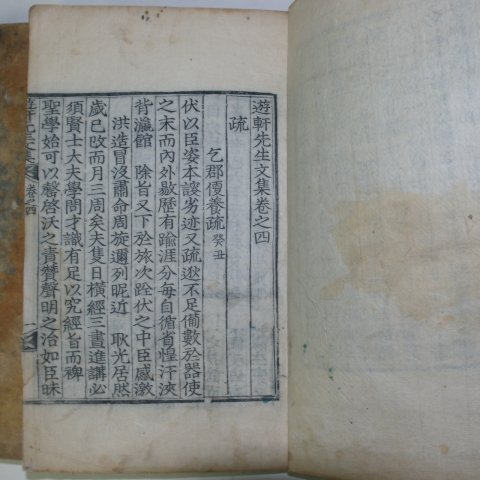 遊軒先生文集卷之四
疏
乞郡便養疏 癸丑
伏以臣姿本諛劣迹又疏逖不足備數於器使
之末而內外敭歷有踰涯分每自循省惶汗浹
背瀛館 除旨又下於旅次跧伏之中臣感激
洪造冒沒肅命周旋邇列昵近 耿光居然
歲已改而月三周矣夫隻日橫經三晝進講必
須賢士大夫學問才識有足以究經旨而裨
聖學始可以罄啓沃之責贊聲明之治如臣昧